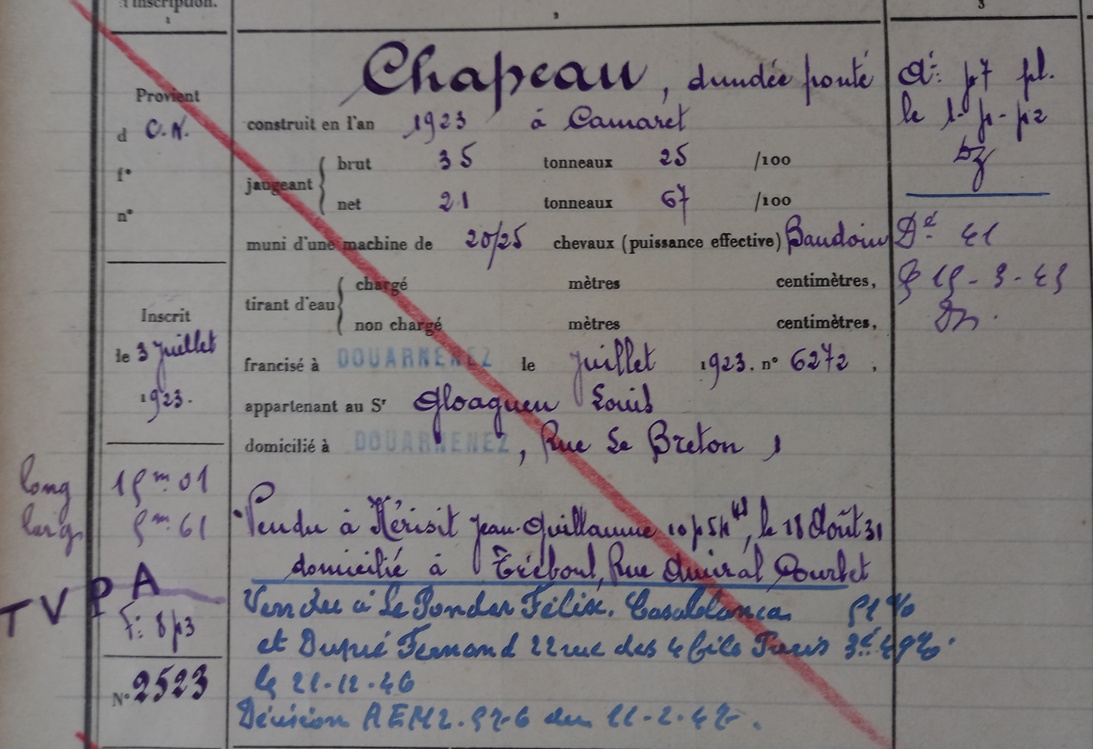 l'inscription.
1
2
3
Provient
d C.N.
f°
n°
Inscrit
le 3 Juillet
1923.
long 15 m 01
larg. 5 m 61
T V P A
F: 8 p3
N° 2523
Chapeau, dundée ponté
construit en l'an 1923 à Camaret
jaugeant
brut 35 tonneaux 25 /100
net 21 tonneaux 67 /100
muni d'une machine de 20/25 chevaux (puissance effective) Baudoin
tirant d'eau
chargé mètres centimètres,
non chargé mètres centimètres,
francisé à DOUARNENEZ le Juillet 1923. n° 6272,
appartenant au Sr Gloaguen Louis
domicilié à DOUARNENEZ, Rue Le Breton,
Vendu à Kérisit Jean-Guillaume, le 18 Août 31
domicilié à Tréboul, Rue Amiral Courbet
Vendu à Félix. Casablanca 51 %
et Dupré Fernand 22 rue des 4 fils Paris 3e 49%.
le 21-12-46
Décision du 11-2-47.